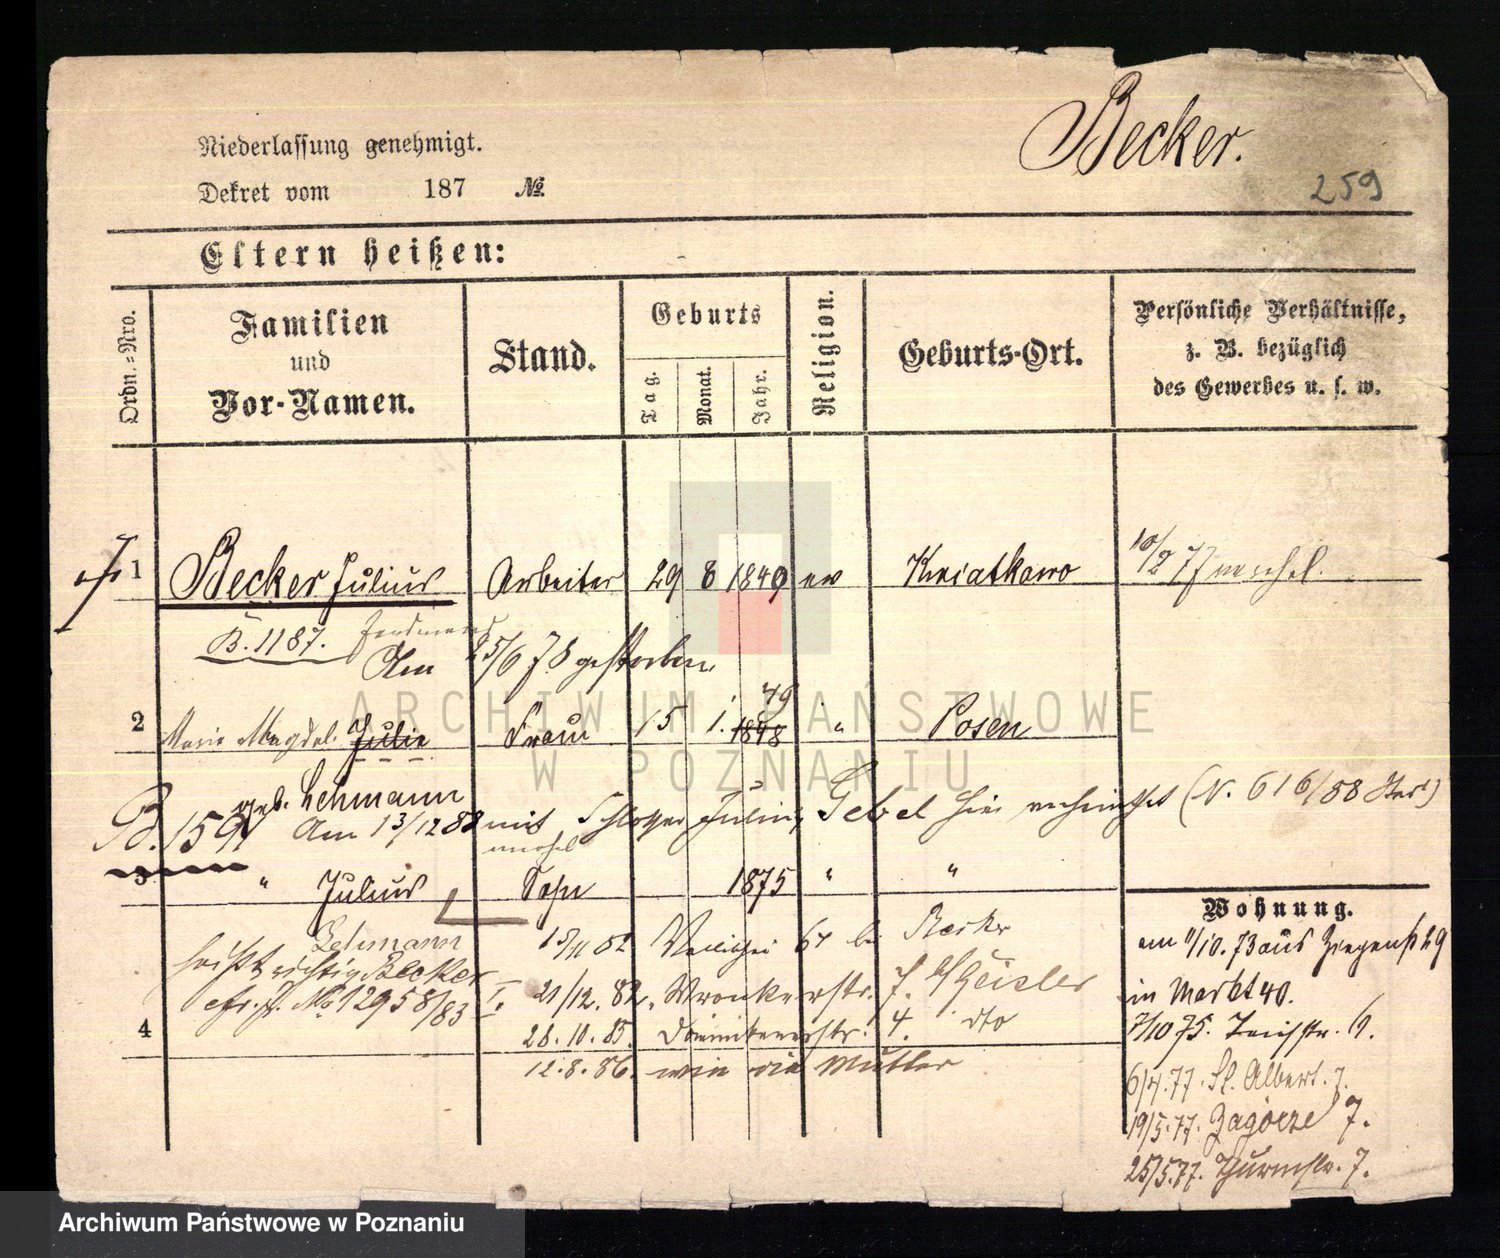 Becker.
259
Niederlassung genehmigt.
Dekret vom 187 №
Eltern heißen:
Ordn.-Nro.
Familien
und
Vor-Namen.
Stand.
Geburts
Tag.
Monat.
Jahr.
Religion.
Geburts-Ort.
Persönliche Verhältnisse,
z. B. bezüglich
des Gewerbes u. s. w.
1 Becker Julius Arbeiter 29 8 1849 ev Kwiatkowo 10/2 77
B. 1187.
Am 25/6 78 gestorben
2 Marie Magdal. Julie Frau 15 1. 1848 49 " Posen
geb. Lehmann
B. 159
Am 13/12 88 mit Schlosser Julius Gebel hier verheirathet (N. 616/88)
3 " Julius Sohn 1875 " "
Lehmann
heißt richtig Becker
cfr. J. No 12958/83
15/11 82 64 bei Becker
I. 21/12. 82. Wronkerstr. 7. b/ Geisler
4
28. 10. 85. Dominikanerstr. 4. dto
12. 8. 86. wie die Mutter
Wohnung.
am 1/10. 73 aus Ziegenst 29
in Markt 40.
7/10 75. Teichstr. 6.
6/4. 77. St. Albert. 7.
19/5. 77. Zagorze 7.
25/5. 77. Thurmstr. 7.
ARCHIWUM PAŃSTWOWE
W POZNANIU
Archiwum Państwowe w Poznaniu